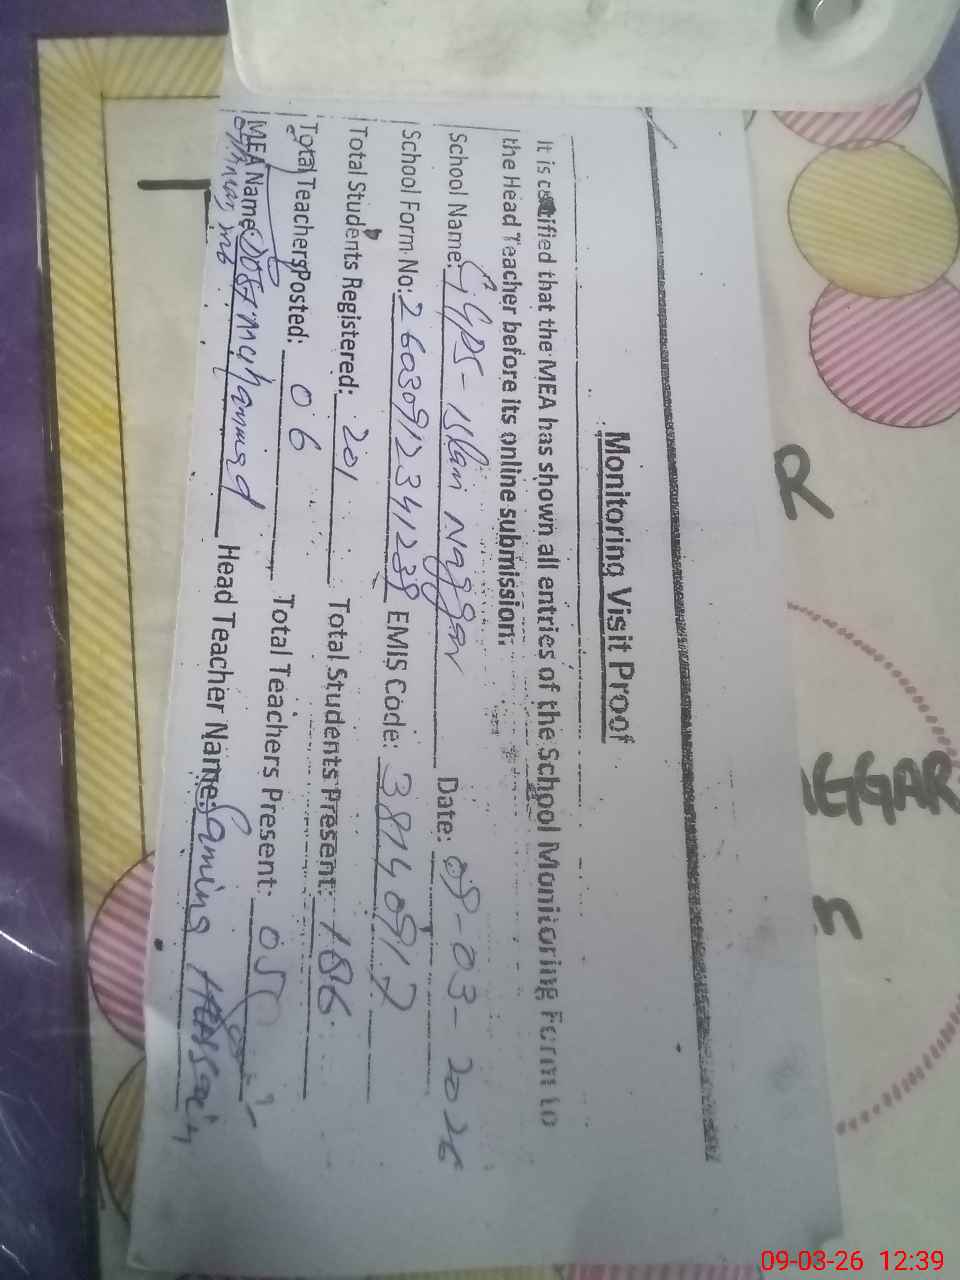 Monitoring Visit Proof
It is certified that the MEA has shown all entries of the School Monitoring Form to
the Head Teacher before its online submission.
School Name: GGPS-Islam Naggar Date: 09-03-2026
School Form No: 26030912341239 EMIS Code: 38140917
Total Students Registered: 201 Total Students Present: 186
Total Teachers Posted: 06 Total Teachers Present: 05
MEA Name: Dost Muhammad Head Teacher Name: Samina Hussain
R
AGGAR
09-03-26 12:39